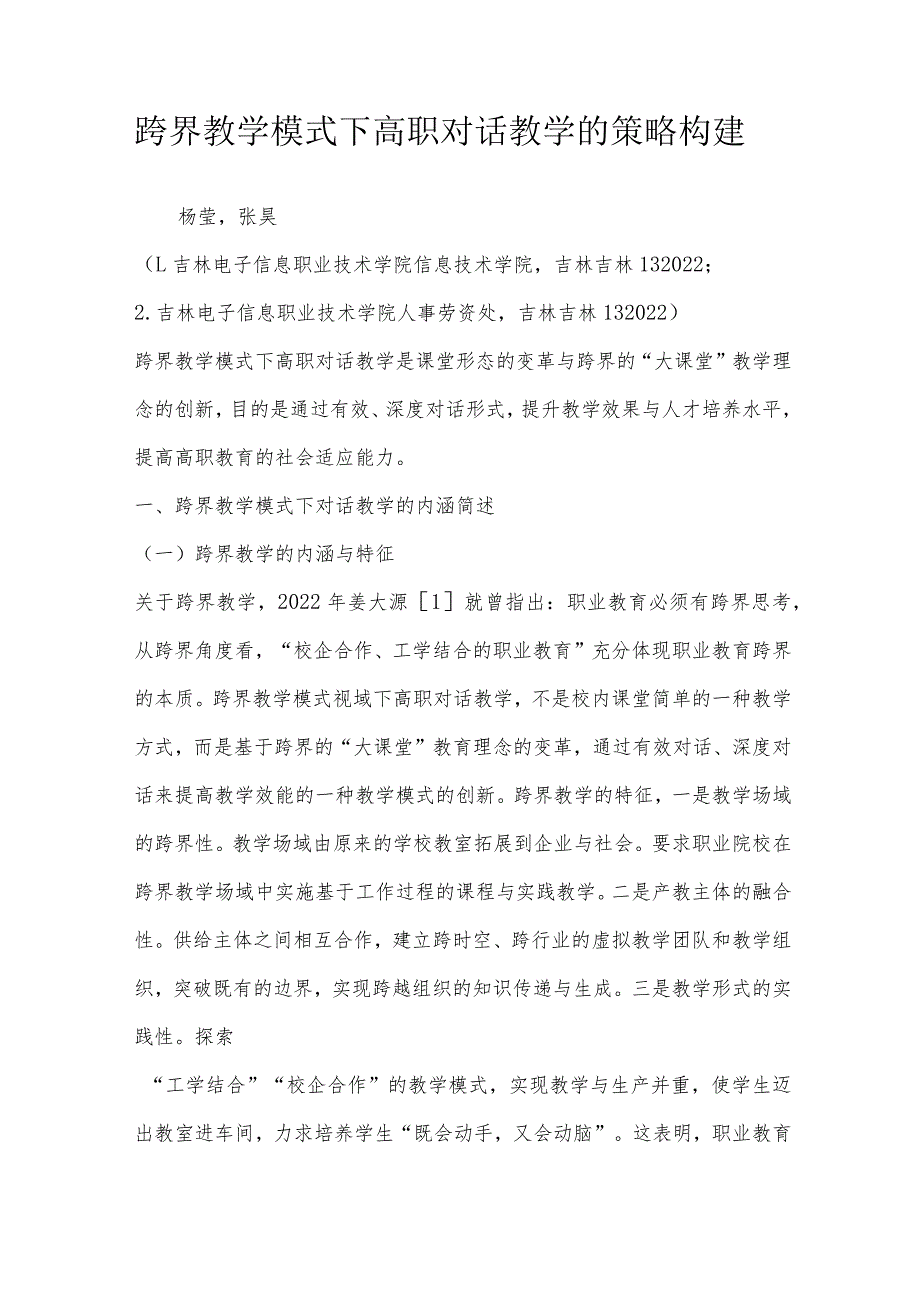 跨界教学模式下高职对话教学的策略构建
杨莹，张昊
（L吉林电子信息职业技术学院信息技术学院，吉林吉林132022；
2.吉林电子信息职业技术学院人事劳资处，吉林吉林132022）
跨界教学模式下高职对话教学是课堂形态的变革与跨界的“大课堂”教学理
念的创新，目的是通过有效、深度对话形式，提升教学效果与人才培养水平，
提高高职教育的社会适应能力。
一、跨界教学模式下对话教学的内涵简述
（一）跨界教学的内涵与特征
关于跨界教学，2022年姜大源［1］就曾指出：职业教育必须有跨界思考，
从跨界角度看，“校企合作、工学结合的职业教育”充分体现职业教育跨界
的本质。跨界教学模式视域下高职对话教学，不是校内课堂简单的一种教学
方式，而是基于跨界的“大课堂”教育理念的变革，通过有效对话、深度对
话来提高教学效能的一种教学模式的创新。跨界教学的特征，一是教学场域
的跨界性。教学场域由原来的学校教室拓展到企业与社会。要求职业院校在
跨界教学场域中实施基于工作过程的课程与实践教学。二是产教主体的融合
性。供给主体之间相互合作，建立跨时空、跨行业的虚拟教学团队和教学组
织，突破既有的边界，实现跨越组织的知识传递与生成。三是教学形式的实
践性。探索
“工学结合”“校企合作”的教学模式，实现教学与生产并重，使学生迈
出教室进车间，力求培养学生“既会动手，又会动脑”。这表明，职业教育